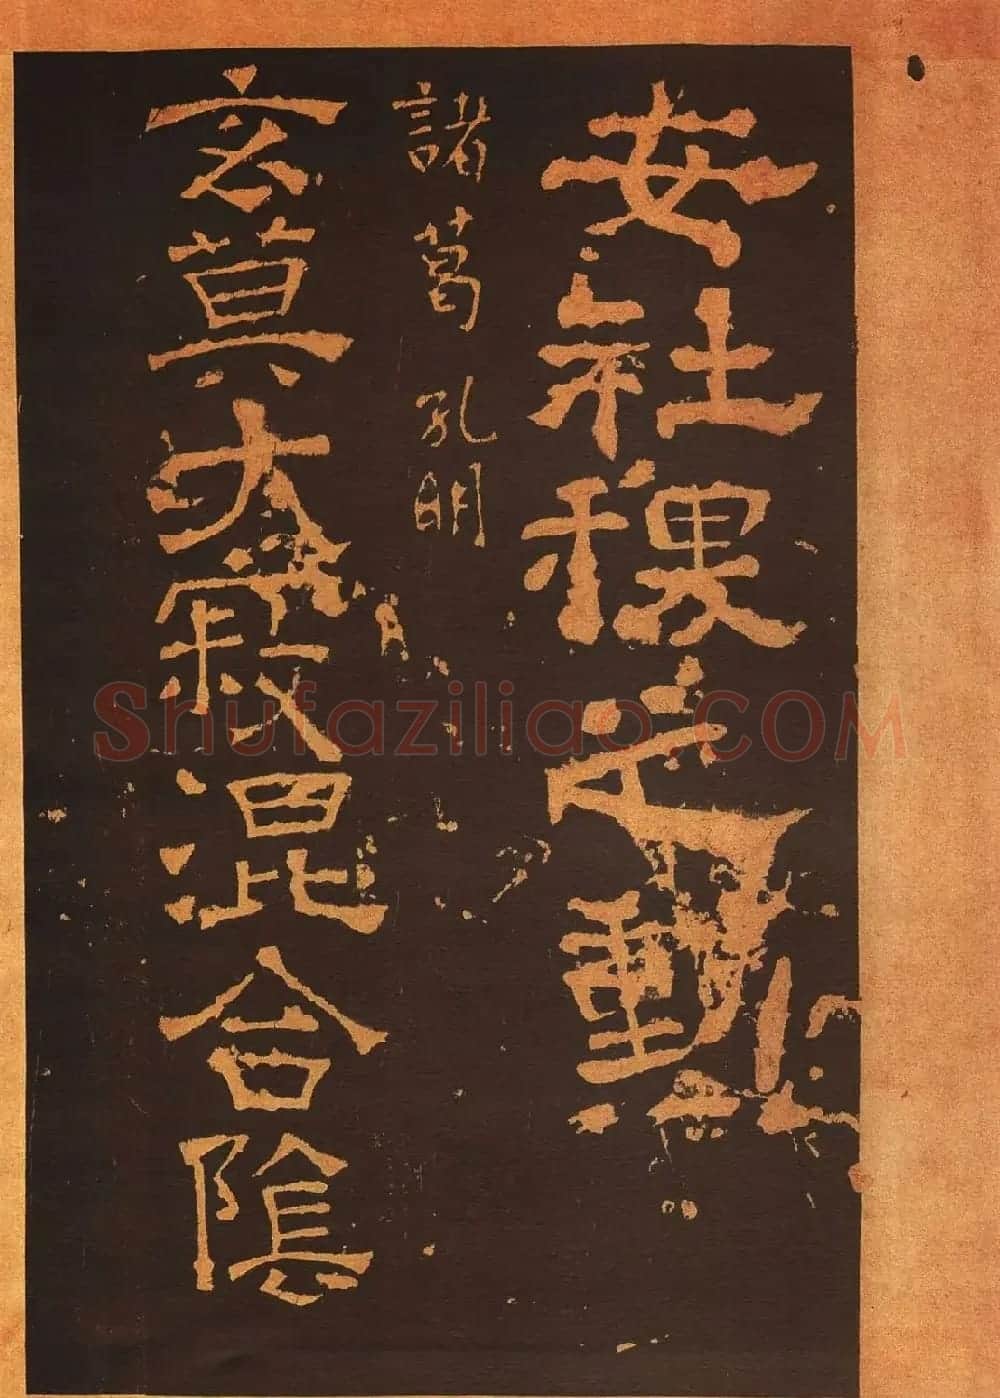 安社稷之勳
諸葛孔明
玄莫大寂混合陰
Shufaziliao.COM